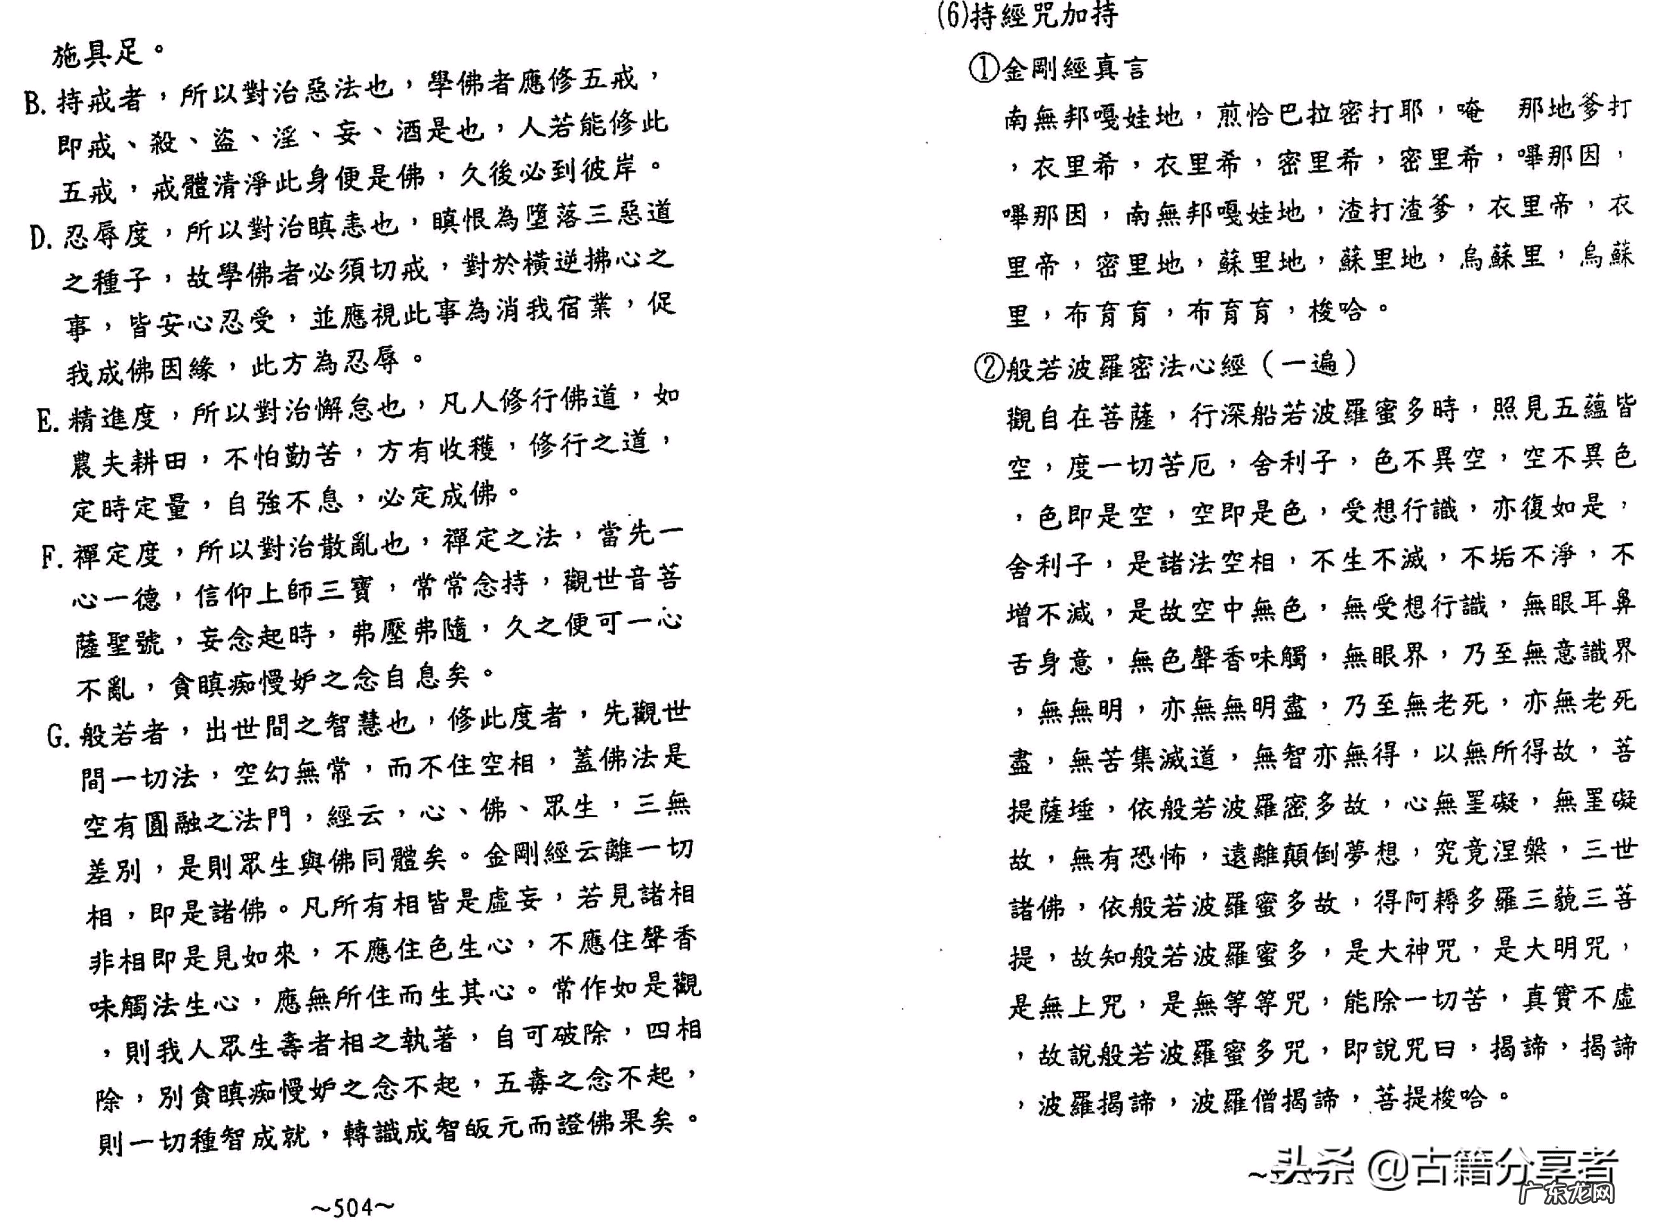 施具足。
B. 持戒者，所以對治惡法也，學佛者應修五戒，
即戒、殺、盜、淫、妄、酒是也，人若能修此
五戒，戒體清淨此身便是佛，久後必到彼岸。
D. 忍辱度，所以對治瞋恚也，瞋恨為墮落三惡道
之種子，故學佛者必須切戒，對於橫逆拂心之
事，皆安心忍受，並應視此事為消我宿業，促
我成佛因緣，此方為忍辱。
E. 精進度，所以對治懈怠也，凡人修行佛道，如
農夫耕田，不怕勤苦，方有收穫，修行之道，
定時定量，自強不息，必定成佛。
F. 禪定度，所以對治散亂也，禪定之法，當先一
心一德，信仰上師三寶，常常念持，觀世音菩
薩聖號，妄念起時，弗壓弗隨，久之便可一心
不亂，貪瞋痴慢妒之念自息矣。
G. 般若者，出世間之智慧也，修此度者，先觀世
間一切法，空幻無常，而不住空相，蓋佛法是
空有圓融之法門，經云，心、佛、眾生，三無
差別，是則眾生與佛同體矣。金剛經云離一切
相，即是諸佛。凡所有相皆是虛妄，若見諸相
非相即是見如來，不應住色生心，不應住聲香
味觸法生心，應無所住而生其心。常作如是觀
，則我人眾生壽者相之執著，自可破除，四相
除，別貪瞋痴慢妒之念不起，五毒之念不起，
則一切種智成就，轉識成智皈元而證佛果矣。
~504~
(6)持經咒加持
①金剛經真言
南無邦嘎娃地，煎恰巴拉密打耶，唵　那地爹打
，衣里希，衣里希，密里希，密里希，嗶那因，
嗶那因，南無邦嘎娃地，渣打渣爹，衣里帝，衣
里帝，密里地，蘇里地，蘇里地，烏蘇里，烏蘇
里，布育育，布育育，梭哈。
②般若波羅密法心經（一遍）
觀自在菩薩，行深船若波羅蜜多時，照見五蘊皆
空，度一切苦厄，舍利子，色不異空，空不異色
，色即是空，空即是色，受想行識，亦復如是，
舍利子，是諸法空相，不生不滅，不垢不淨，不
增不減，是故空中無色，無受想行識，無眼耳鼻
舌身意，無色聲香味觸，無眼界，乃至無意識界
，無無明，亦無無明盡，乃至無老死，亦無老死
盡，無苦集滅道，無智亦無得，以無所得故，菩
提薩埵，依般若波羅密多故，心無罣礙，無罣礙
故，無有恐怖，遠離顛倒夢想，究竟涅槃，三世
諸佛，依般若波羅蜜多故，得阿耨多羅三藐三菩
提，故知般若波羅蜜多，是大神咒，是大明咒，
是無上咒，是無等等咒，能除一切苦，真實不虛
，故說般若波羅蜜多咒，即說咒曰，揭諦，揭諦
，波羅揭諦，波羅僧揭諦，菩提梭哈。
头条 @古籍分享者
广东龙网